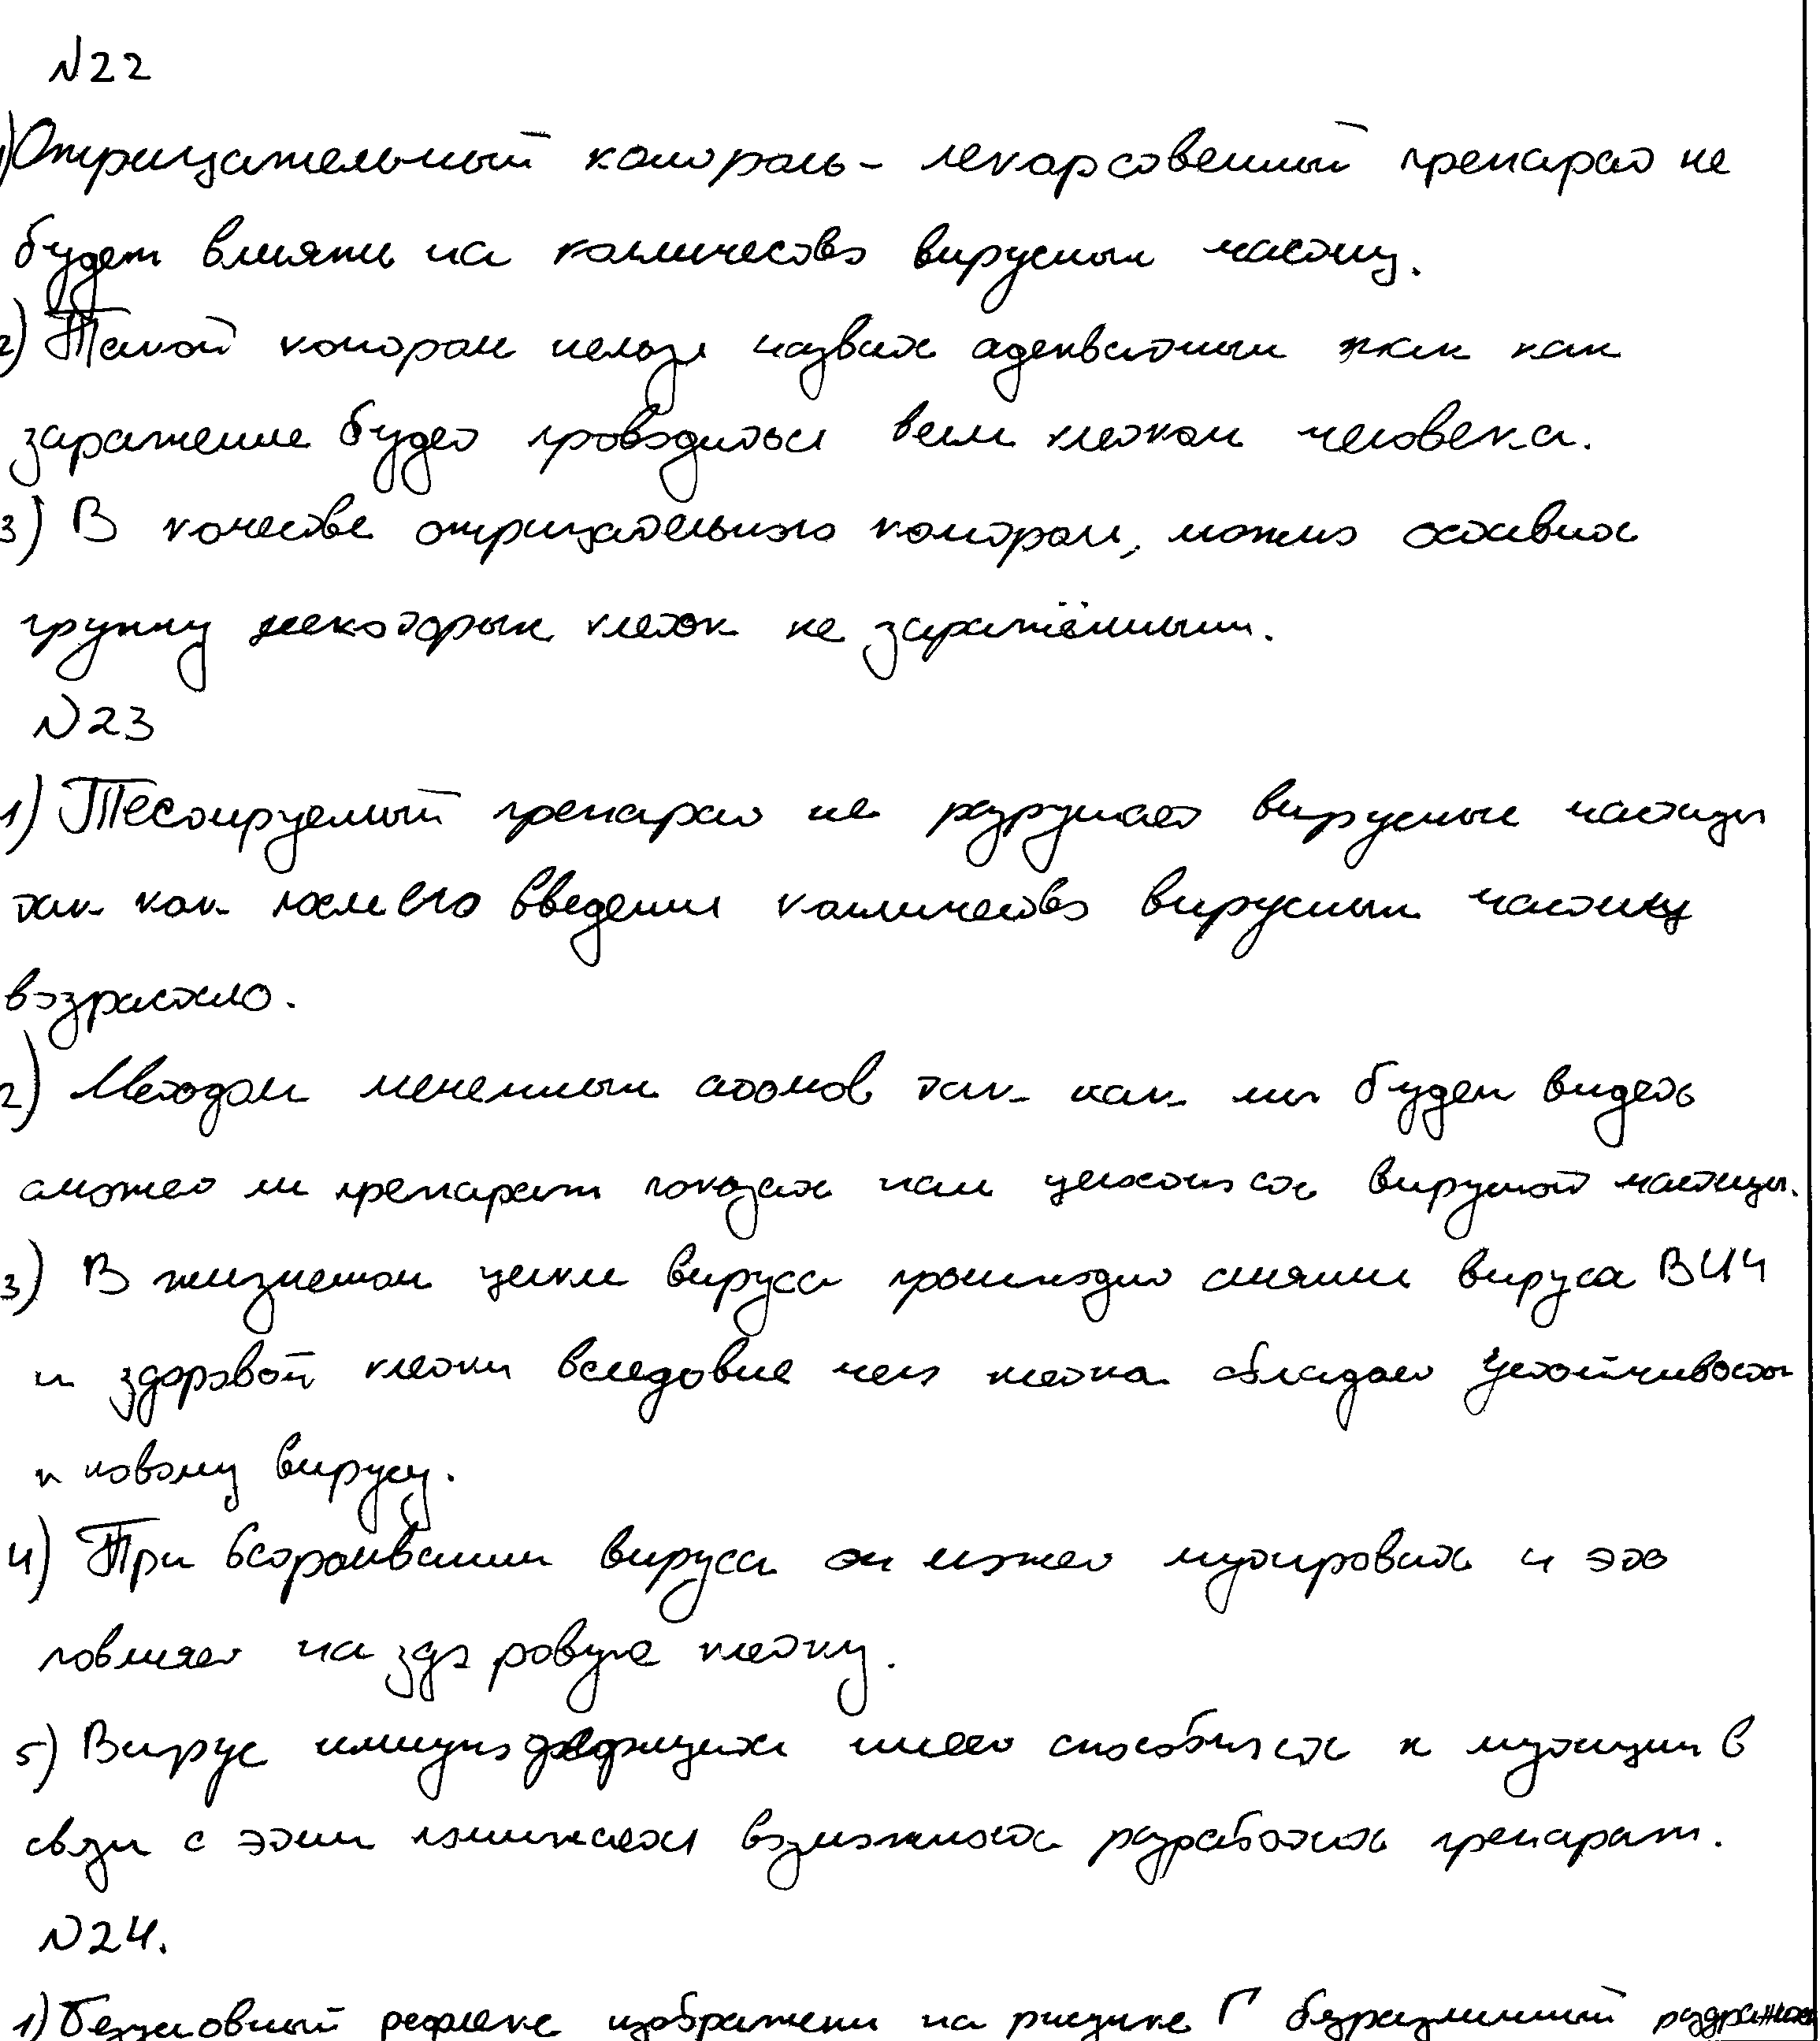 №22
1) Отрицательный контроль - лекарственный препарат не
будет влиять на количество вирусных частиц.
2) Такой контроль нельзя назвать адекватным так как
заражение будет проводиться всем клеткам человека.
3) В качестве отрицательного контроля, можно оставить
группу некоторых клеток не заражёнными.
№23
1) Тестируемый препарат не разрушает вирусные частицы
так как после его введения количество вирусных частиц
возрастало.
2) Методом меченных атомов так как мы будем видеть
сможет ли препарат показать нам целостность вирусной частицы.
3) В жизненном цикле вируса происходит слияние вируса ВИЧ
и здоровой клетки вследствие чего клетка обладает устойчивостью
к новому вирусу.
4) При встраивании вируса он может мутировать и это
повлияет на здоровую клетку.
5) Вирус имунодефицита имеет способность к мутации в
связи с этим понижается возможность разработать препарат.
№24.
1) Безусловный рефлекс изображен на рисунке Г безразличный раздражитель